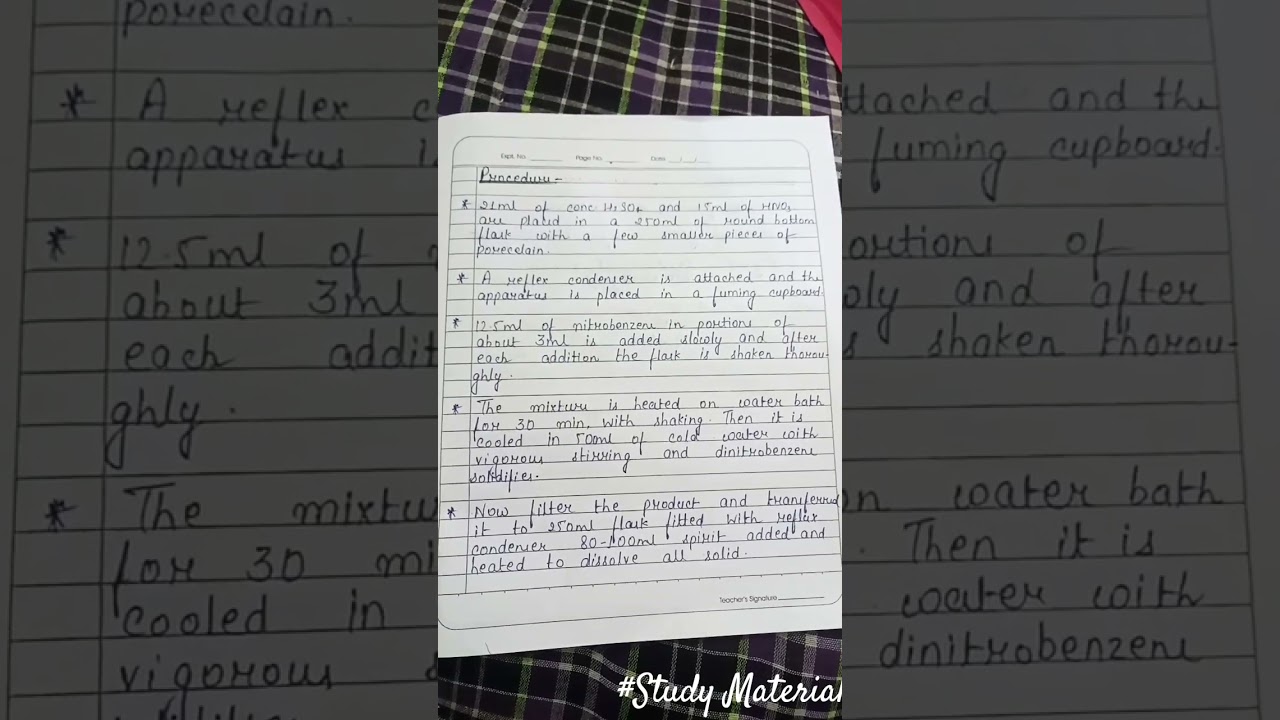 Expt. No. Page No. Date
Procedure -
* 21ml of conc H2SO4 and 15ml of HNO3
are placed in a 250ml of round bottom
flask with a few smaller pieces of
porecelain.
* A reflex condenser is attached and the
apparatus is placed in a fuming cupboard.
* 12.5ml of nitrobenzene in portions of
about 3ml is added slowly and after
each addition the flask is shaken thorou-
ghly.
* The mixture is heated on water bath
for 30 min, with shaking. Then it is
cooled in 500ml of cold water with
vigorous stirring and dinitrobenzene
solidifies.
* Now filter the product and transferred
it to 250ml flask fitted with reflux
condenser 80-100ml spirit added and
heated to dissolve all solid.
Teacher's Signature
#Study Material